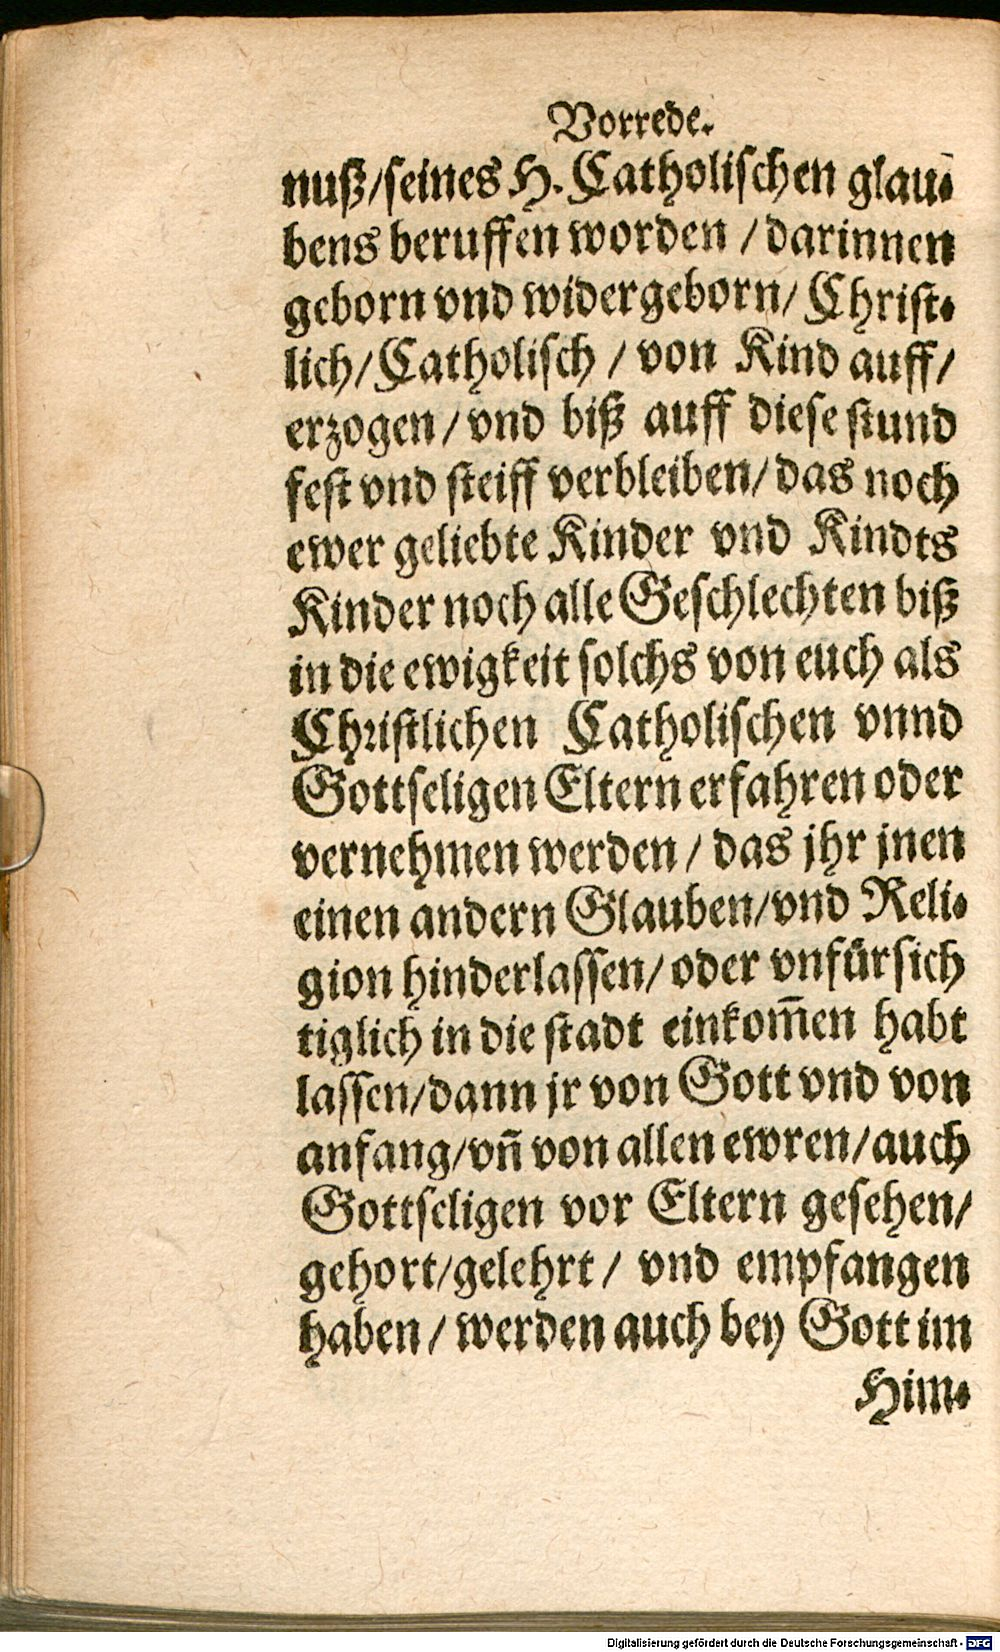 Vorrede.
nuß/seines H. Catholischen glau⸗
bens beruffen worden / darinnen
geborn vnd widergeborn/ Christ⸗
lich/Catholisch / von Kind auff/
erzogen/ vnd biß auff diese stund
fest vnd steiff verbleiben/ das noch
ewer geliebte Kinder vnd Kindts
Kinder noch alle Geschlechten biß
in die ewigkeit solchs von euch als
Christlichen Catholischen vnnd
Gottseligen Eltern erfahren oder
vernehmen werden / das jhr jnen
einen andern Glauben/vnd Reli⸗
gion hinderlassen/ oder vnfürsich
tiglich in die stadt einkom̃en habt
lassen/dann jr von Gott vnd von
anfang/vñ von allen ewren/auch
Gottseligen vor Eltern gesehen/
gehort/gelehrt / vnd empfangen
haben / werden auch bey Gott im
Him⸗
Digitalisierung gefördert durch die Deutsche Forschungsgemeinschaft - DFG